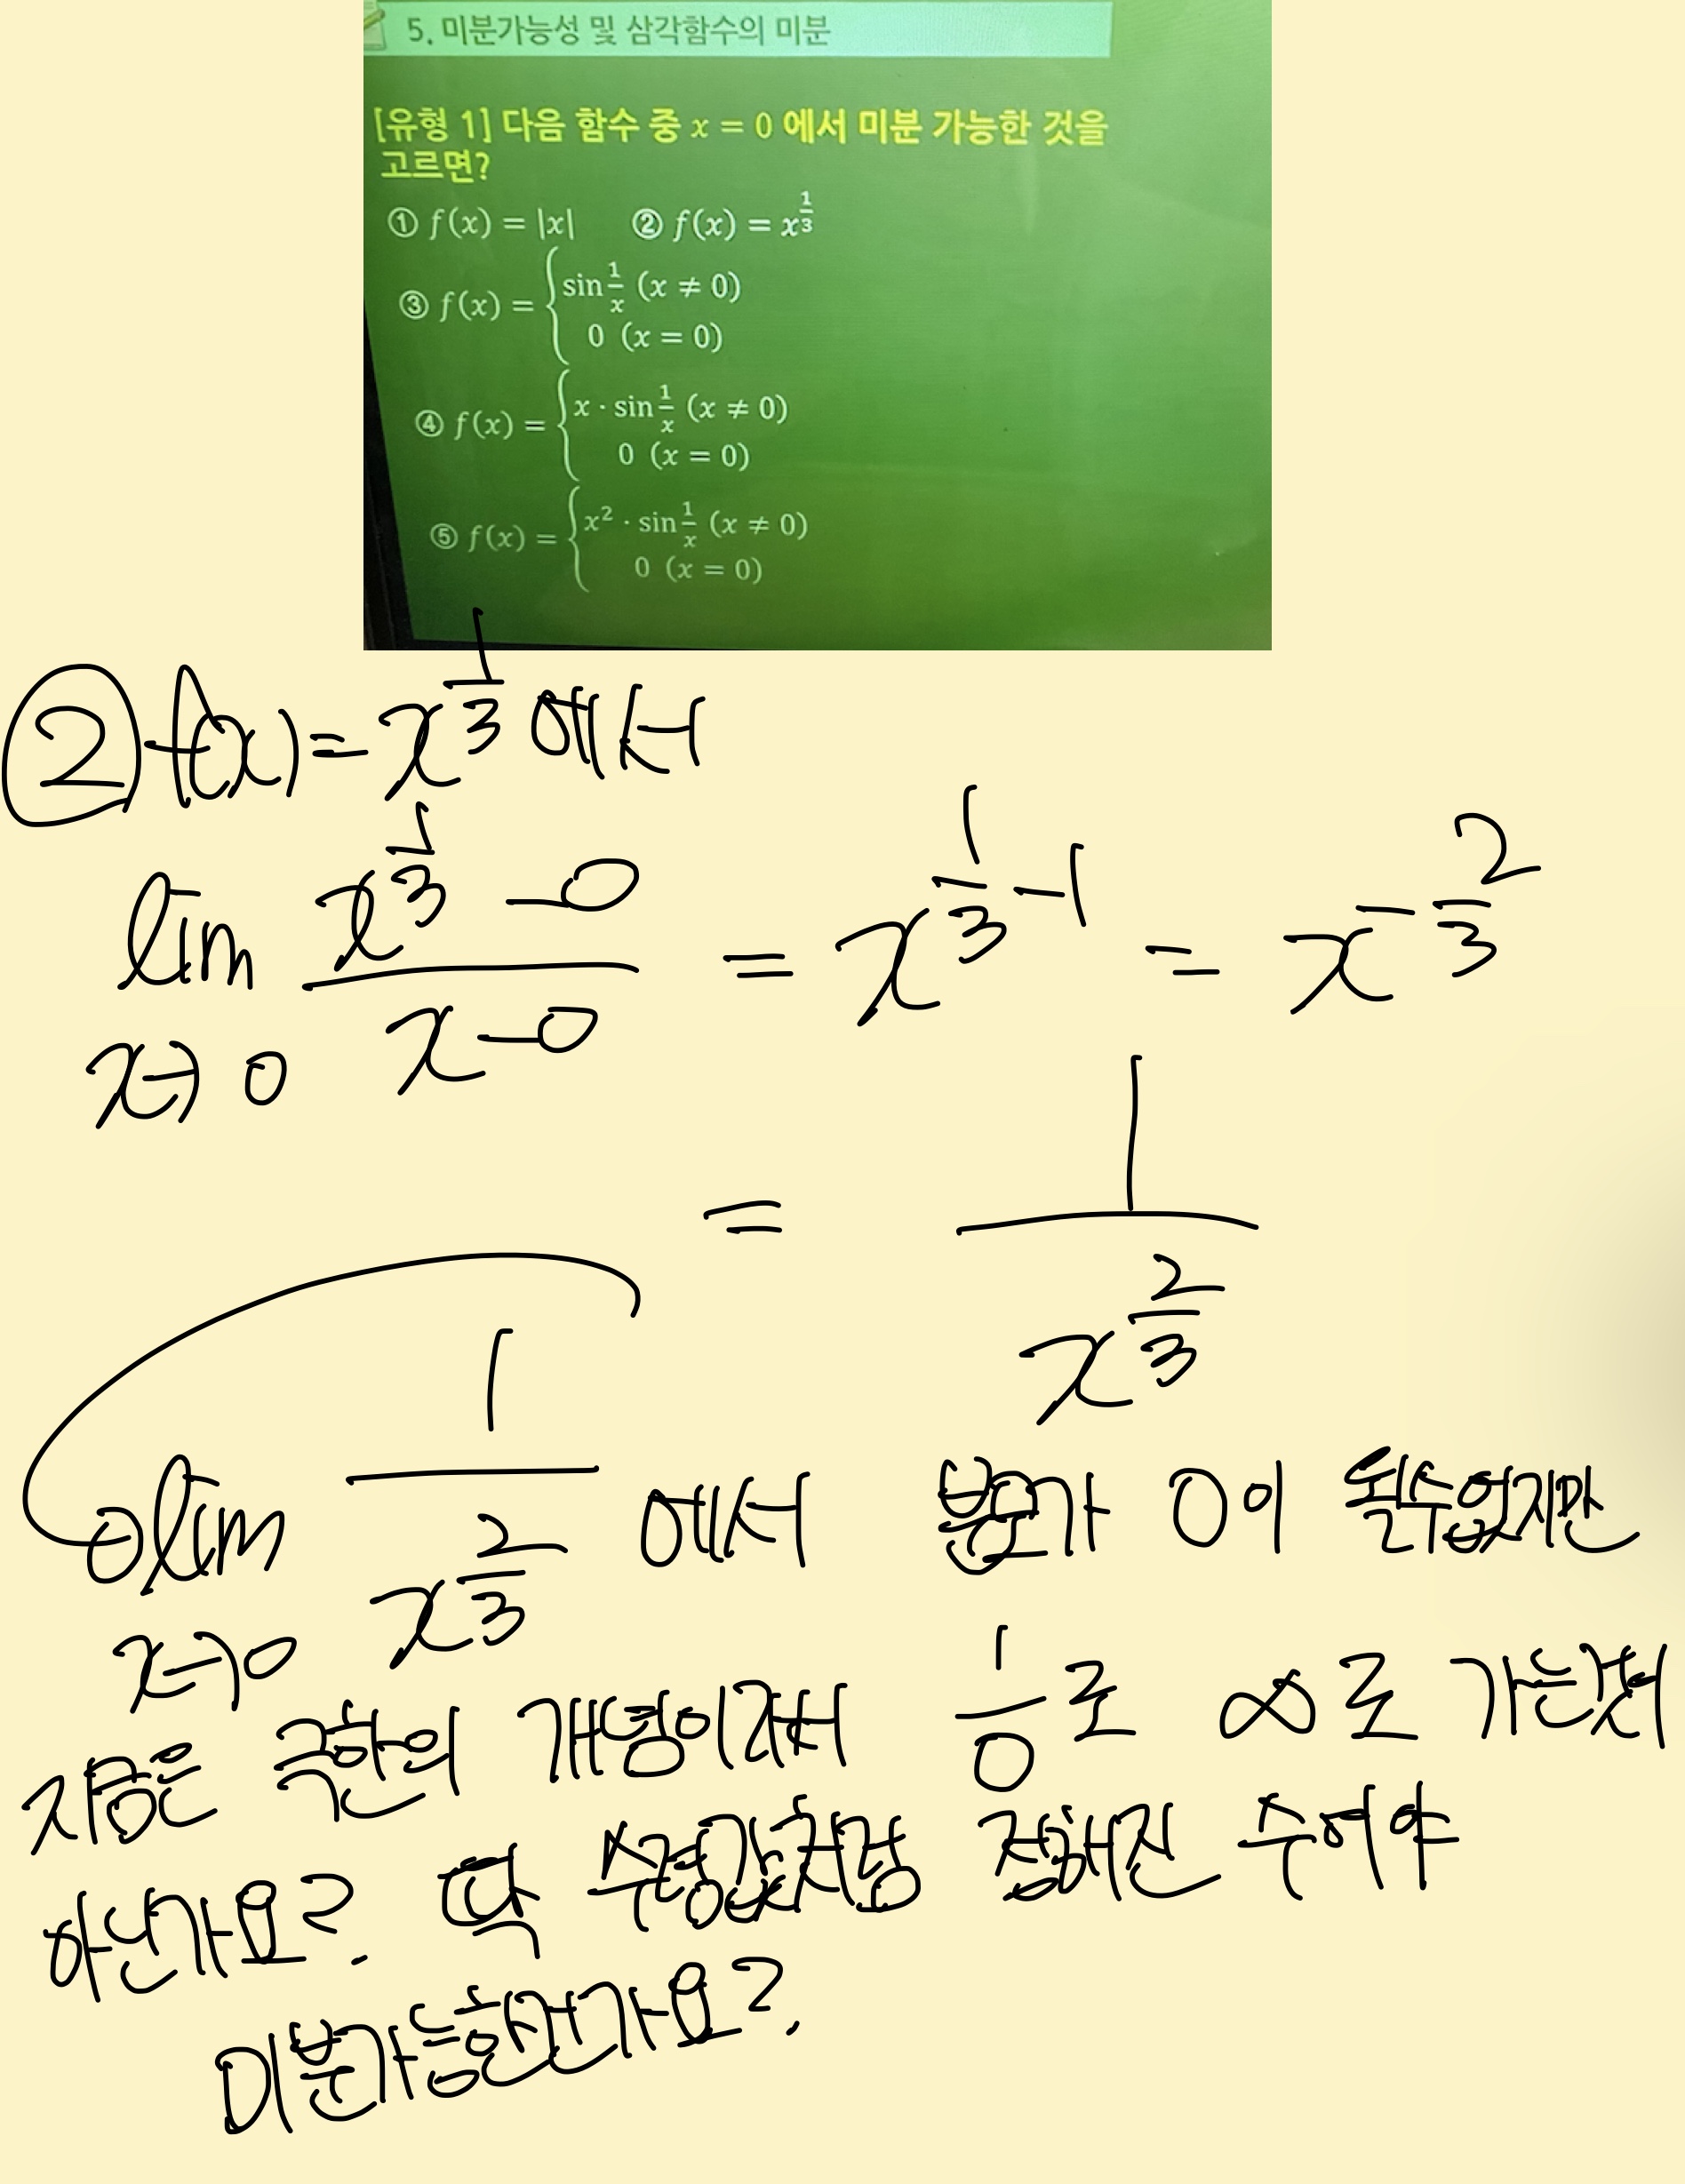 5. 미분가능성 및 삼각함수의 미분
[유형 1] 다음 함수 중 x = 0 에서 미분 가능한 것을
고르면?
① f(x) = |x| ② f(x) = x^{1/3}
③ f(x) = { sin 1/x (x ≠ 0)
0 (x = 0)
④ f(x) = { x · sin 1/x (x ≠ 0)
0 (x = 0)
⑤ f(x) = { x² · sin 1/x (x ≠ 0)
0 (x = 0)
② f(x) = x^{1/3} 에서
lim x→0 (x^{1/3} - 0)/(x - 0) = x^{1/3 - 1} = x^{-2/3}
= 1/x^{2/3}
lim x→0 1/x^{2/3} 에서 분모가 0이 될수없지만
지금은 극한의 개념이라서 1/0로 ∞로 가는것이
아닌가요? 딱 수렴값처럼 정해진 수여야
미분가능한건가요?